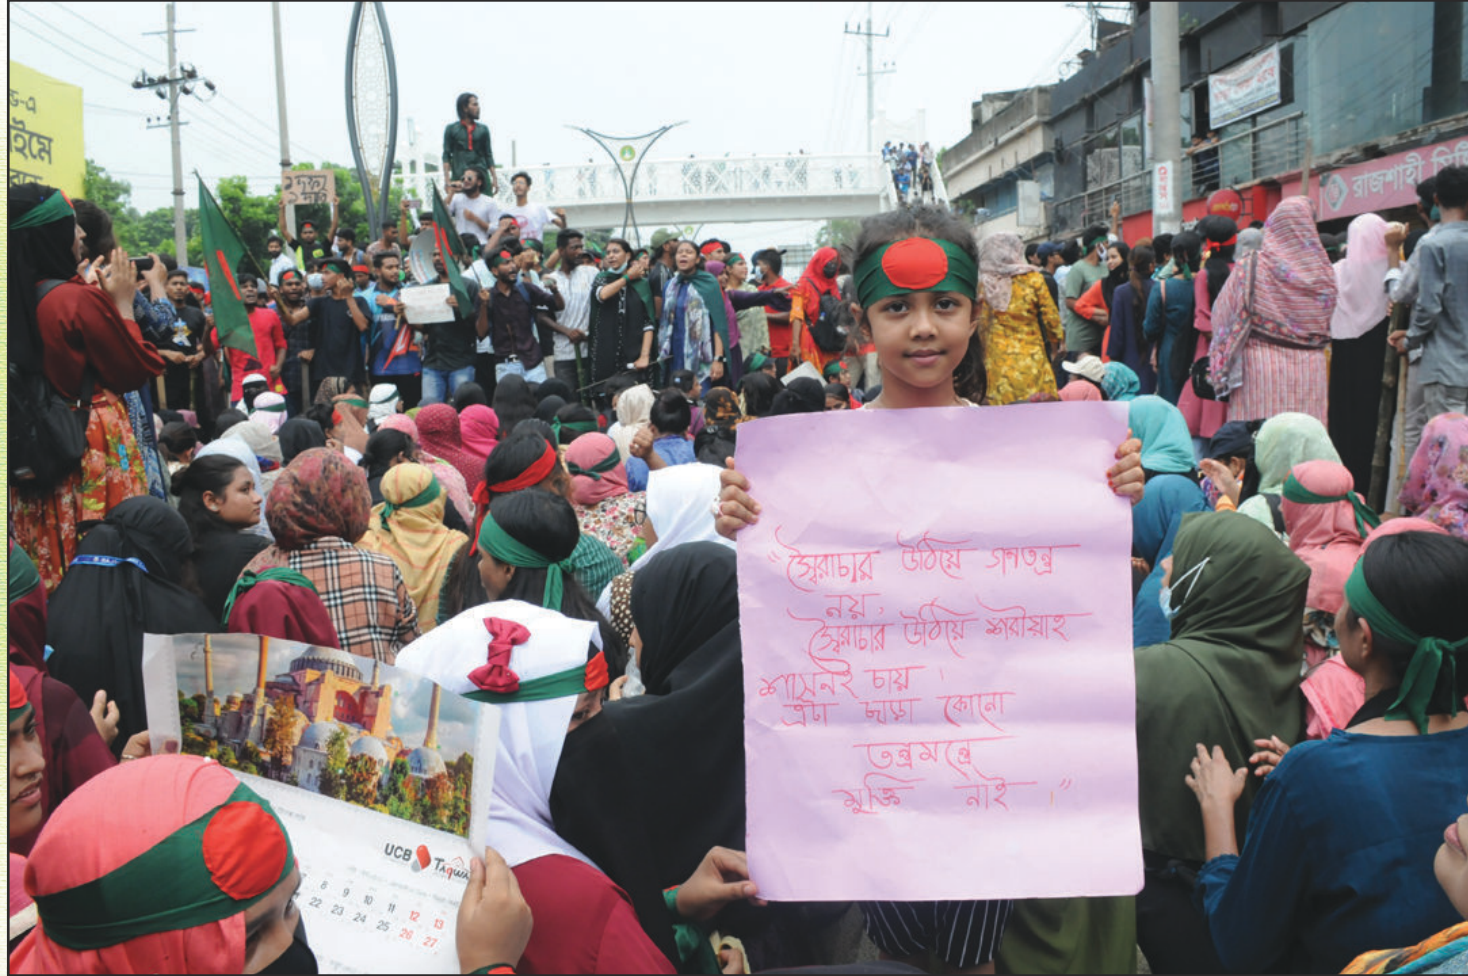 ড-এ
ইমে
১ দফা
১ দফা
রাজশাহী
"স্বৈরাচার উঠিয়ে গনতন্ত্র
নয়,
স্বৈরাচার উঠিয়ে শরীয়াহ
শাসনই চায়।
এটা ছাড়া কোনো
তন্ত্রমন্ত্রে
মুক্তি নাই।"
UCB TAQWA
8 9 10 11 12 13
22 23 24 25 26 27